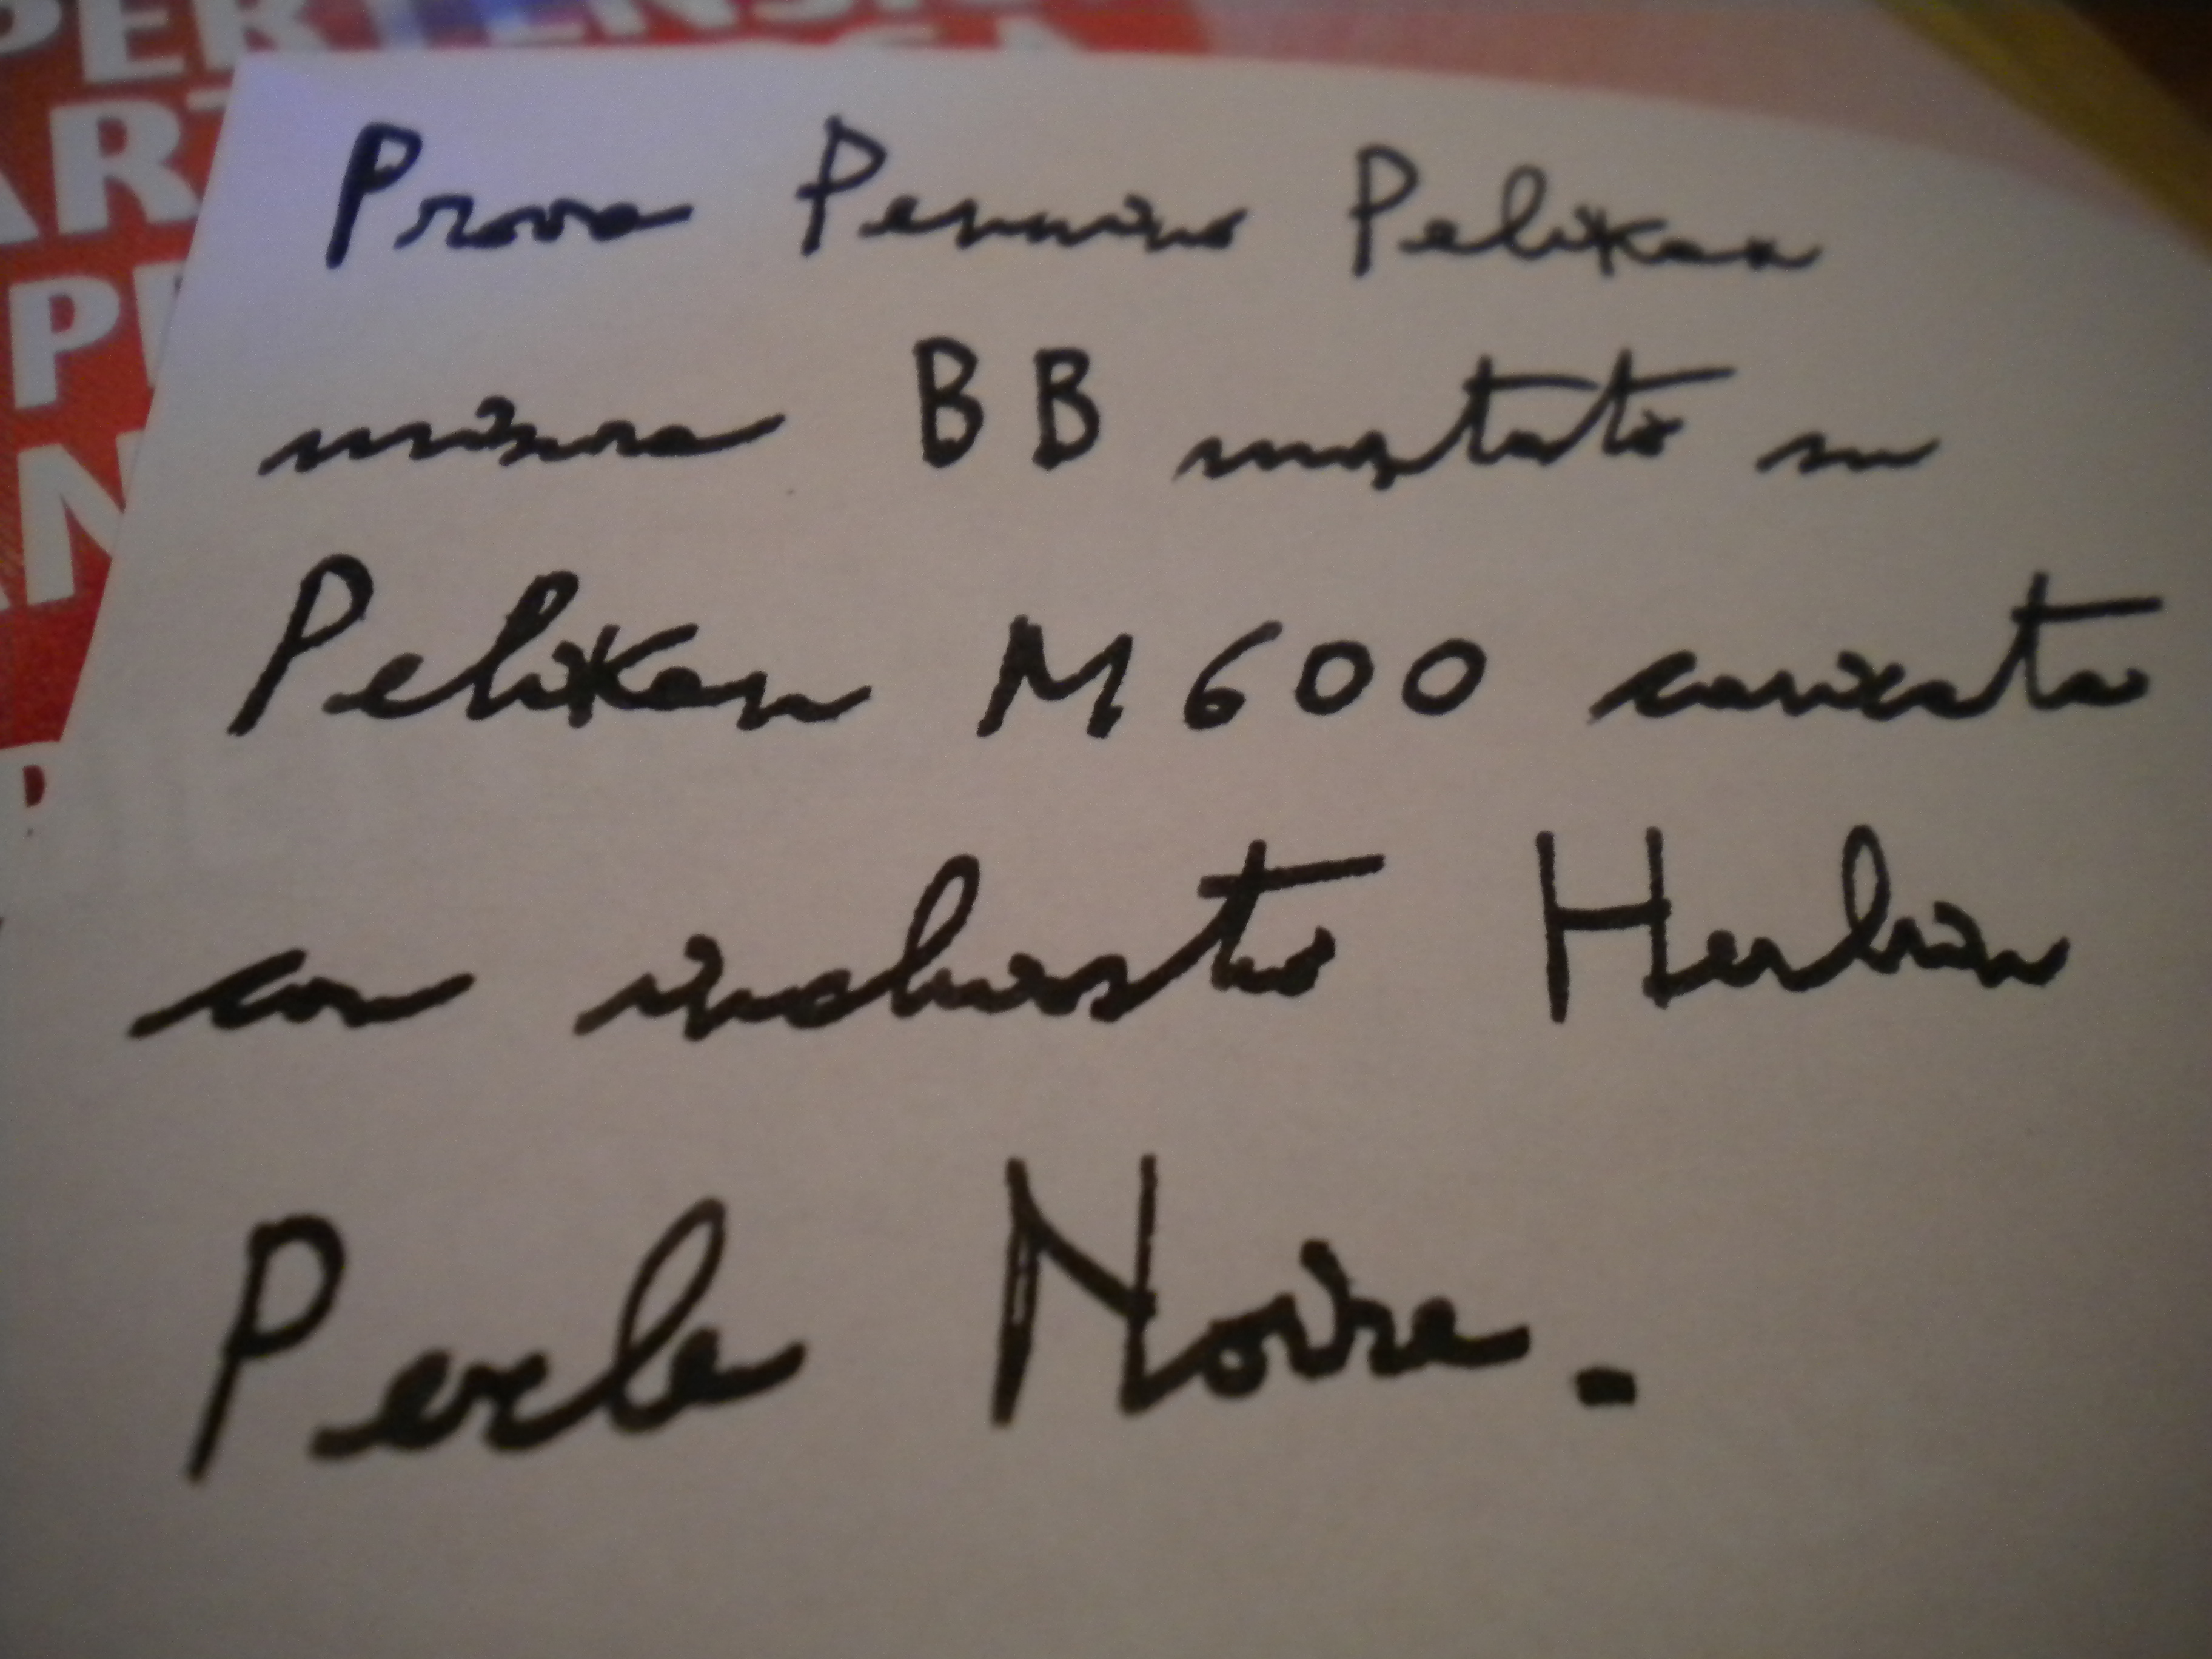 PERTENSIO
ART
Prova Pennino Pelikan
misura BB montato su
Pelikan M600 caricata
con inchiostro Herbin
Perle Noire.